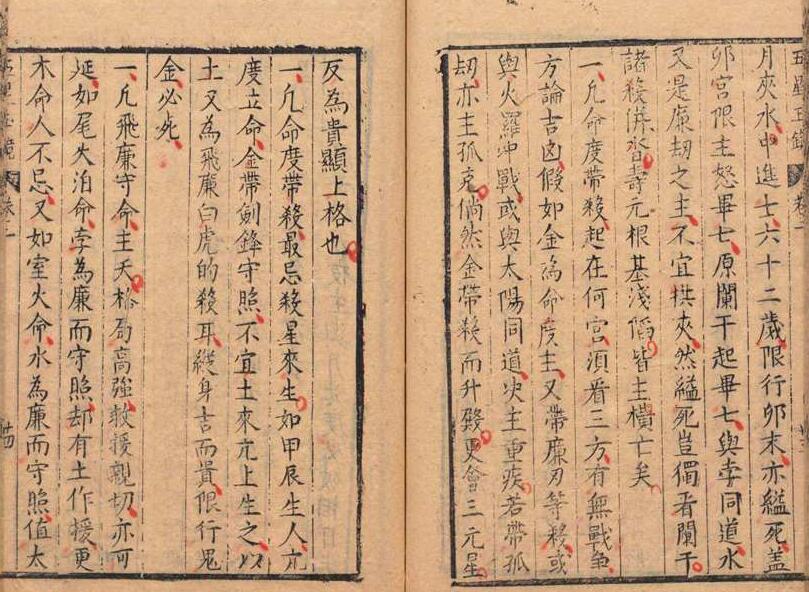 月夾水中進士六十二歲限行卯末亦縊死蓋
卯宮限主怒畢七原闌干起畢七與孛同道水
又是廉劫之主不宜拱夾然縊死豈獨看闌干
諸殺併沓壽元根基淺陷皆主橫亡矣
一凡命度帶殺起在何宮須看三方有無戰爭
方論吉凶假如金為命度主又帶廉刃等殺或
與火羅冲戰或與太陽同道決主重疾若帶孤
劫亦主孤克倘然金帶殺而升殿更會三元星
反為貴顯上格也
一凡命度帶殺最忌殺星來生如甲辰生人亢
度立命金帶劍鋒守照不宜土來亢上生之以
土又為飛廉白虎的殺耳縱身吉而貴限行鬼
金必死
一凡飛廉守命主夭格局高強救援親切亦可
延如尾火泊命孛為廉而守照却有土作援更
木命人不忌又如室火命水為廉而守照值太
卷二